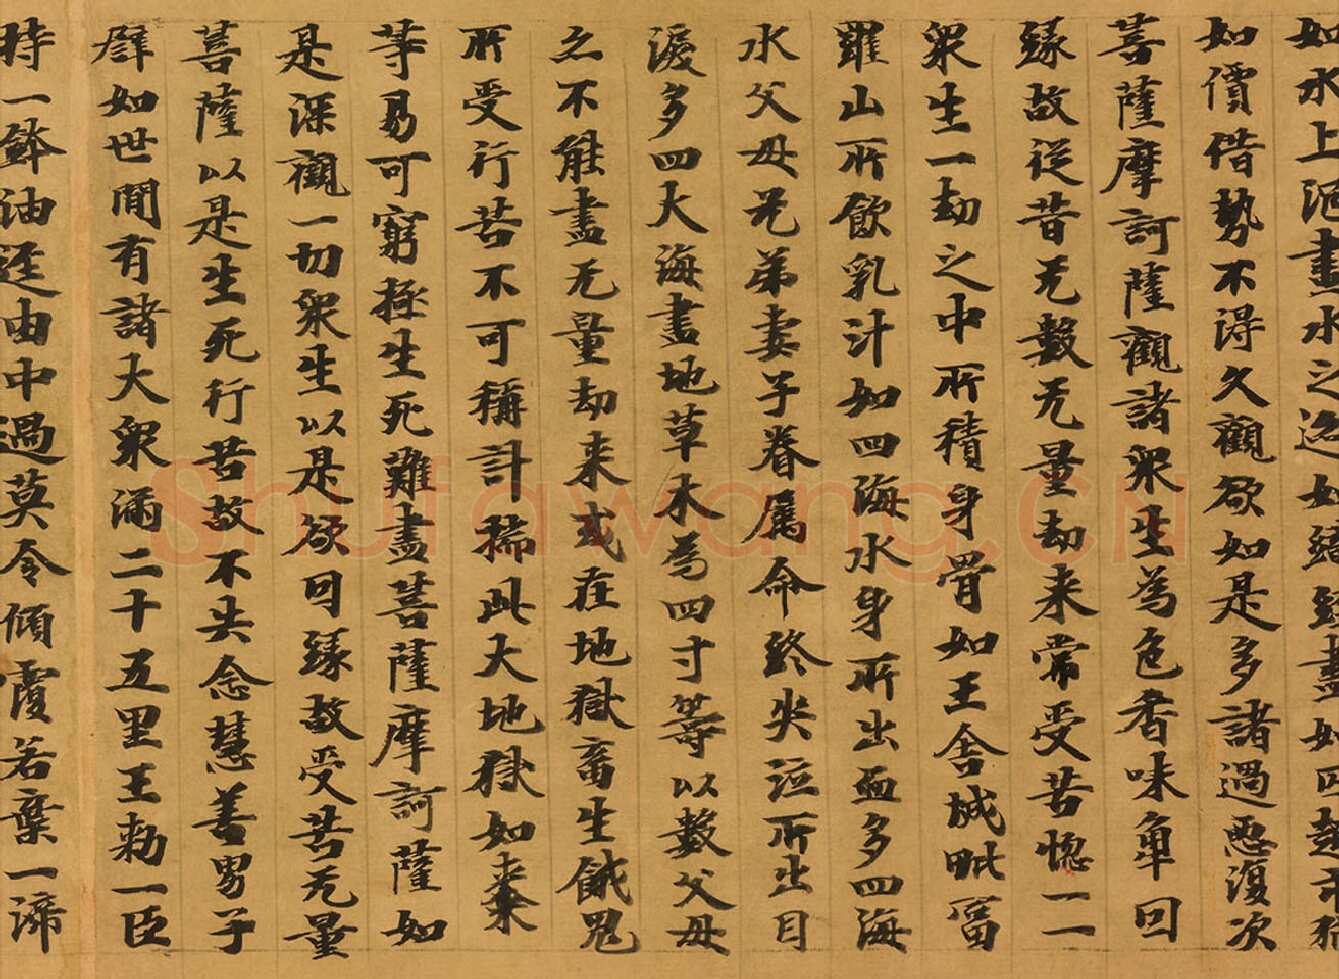 如水上泡畫水之迹如織經盡如囚趣市猶
如價借勢不得久觀欲如是多諸過惡復次
菩薩摩訶薩觀諸衆生為色香味角因
緣故從昔无數无量劫来常受苦惚一一
衆生一劫之中所積身骨如王舍城毗富
羅山所飲乳汁如四海水身所出血多四海
水父母兄弟妻子眷属命終哭泣所出目
淚多四大海盡地草木為四寸等以數父母
亦不能盡无量劫来或在地獄畜生餓鬼
所受行苦不可稱計揣此大地獄如棗
等易可窮極生死難盡菩薩摩訶薩如
是深觀一切衆生以是欲因緣故受苦无量
菩薩以是生死行苦故不失念慧善男子
譬如世間有諸大衆滿二十五里王勑一臣
持一鉢油逕由中過莫令傾覆若棄一渧
Shufawang.CN